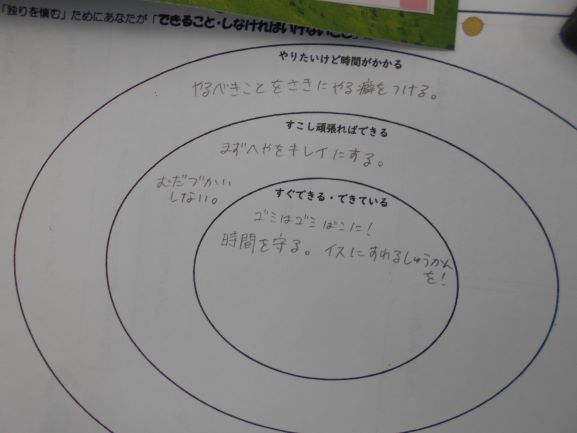 「独りを慎む」ためにあなたが「できること・しなければいけないこと」
やりたいけど時間がかかる
やるべきことをさきにやる癖をつける。
すこし頑張ればできる
まずへやをキレイにする。
むだづかい
しない。
すぐできる・できている
ゴミはゴミばこに!
時間を守る。 イスにすわるしゅうかん
を!